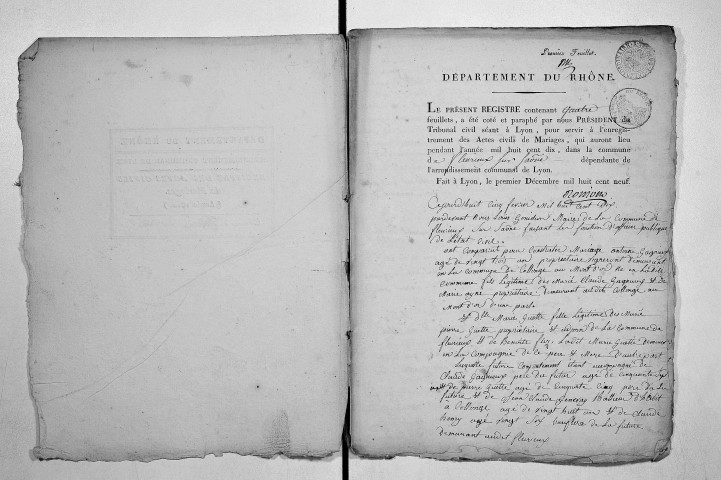 Premier Feuillet.
DÉPARTEMENT DU RHÔNE.
LE PRÉSENT REGISTRE contenant quatre
feuillets, a été coté et paraphé par nous PRÉSIDENT du
Tribunal civil séant à Lyon, pour servir à l'enregis-
trement des Actes civils de Mariages, qui auront lieu
pendant l'année mil huit cent dix, dans la commune
de fleurieux sur saône dépendante de
l'arrondissement communal de Lyon.
Fait à Lyon, le premier Décembre mil huit cent neuf.
Cejourdhuit cinq fevrier mil huit cent dix
pardevant Nous Maire de La Commune de
fleurieux sur Saône faisant les fonction d'officier publique
de l'état civil
ont comparut pour Contracter Mariage antoine
age de vingt trois an proprietaire demeurant
en La commune de Collonge au Mont d'or né en Ladite
commune fils Légitime des Marié Claude et de
Marie proprietaire demeurant audit Collonge au
Mont d'or d'une part
et dlle Marie Guette fille Légitime des Marié
pierre Guette proprietaire de La Commune de
fleurieux et de Benoite Ladit Marie Guette demeurant
en La Compagnie de ce pere et Mere d'autre part
Lesquels future Conjointement étant accompagné de
Claude pere du futur age de cinquante
et de pierre Guette age de cinquante cinq pere de La
future et de Jean Claude
à Collonge age de vingt huit an et de Claude
henry age vingt six de La future
demeurant audit fleurieux